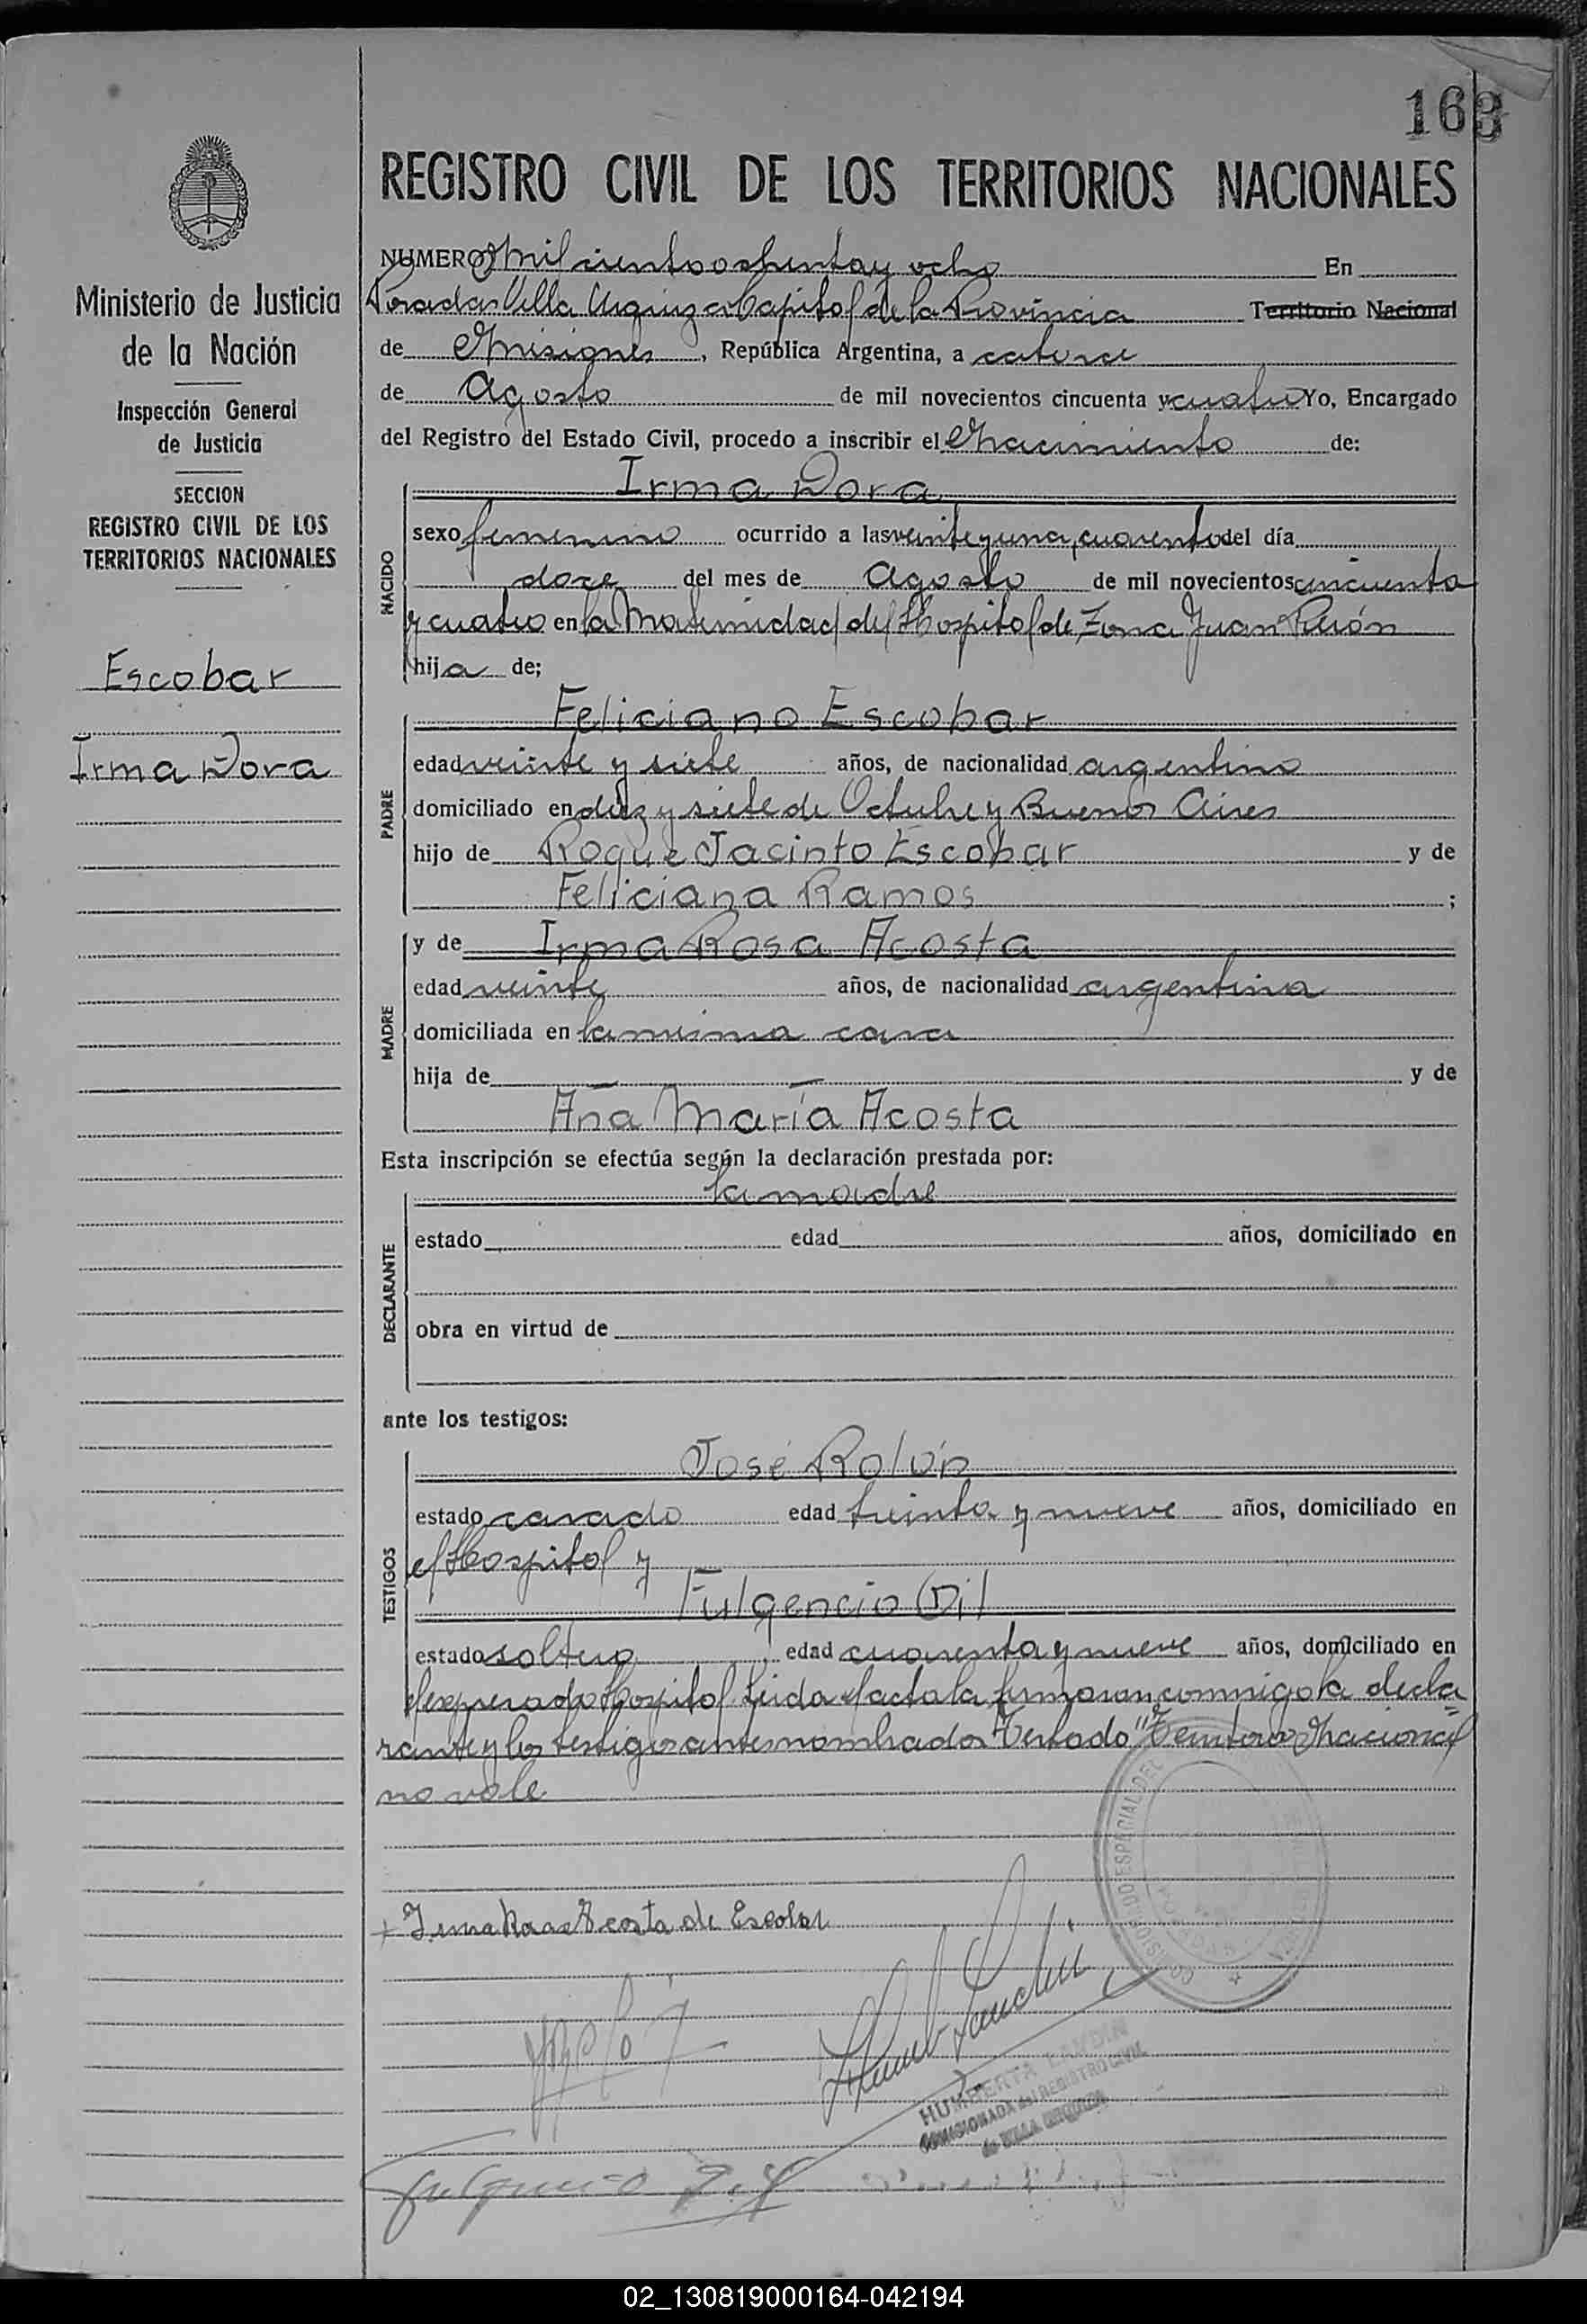 163
REGISTRO CIVIL DE LOS TERRITORIOS NACIONALES
Ministerio de Justicia
de la Nación
Inspección General
de Justicia
SECCION
REGISTRO CIVIL DE LOS
TERRITORIOS NACIONALES
Escobar
Irma Dora
NUMERO Mil ciento ochenta y ocho En
Posadas Villa Urquiza Capital de la Provincia Territorio Nacional
de Misiones, República Argentina, a catorce
de Agosto de mil novecientos cincuenta y cuatro Yo, Encargado
del Registro del Estado Civil, procedo a inscribir el Nacimiento de:
Irma Dora
NACIDO
sexo femenino ocurrido a las veinte y una, cuarenta del día
doce del mes de Agosto de mil novecientos cincuenta
y cuatro en la Maternidad del Hospital de Zona Juan Perón
hija de;
Feliciano Escobar
PADRE
edad veinte y siete años, de nacionalidad argentino
domiciliado en diez y siete de Octubre y Buenos Aires
hijo de Roque Jacinto Escobar y de
Feliciana Ramos ;
MADRE
y de Irma Rosa Acosta
edad veinte años, de nacionalidad argentina
domiciliada en la misma casa
hija de y de
Ana María Acosta
Esta inscripción se efectúa según la declaración prestada por:
la madre
DECLARANTE
estado edad años, domiciliado en
obra en virtud de
ante los testigos:
José Rolón
TESTIGOS
estado casado edad treinta y nueve años, domiciliado en
el Hospital y
Fulgencio Gil
estado soltero edad cuarenta y nueve años, domiciliado en
el expresado Hospital Leida el acta la firmaron conmigo la decla
rante y los testigos antes nombrados Testado "Territorio Nacional"
no vale
Irma Rosa Acosta de Escobar
COMISIONADO ESPECIAL DEL
HUMBERTA LANDIN
COMISIONADA del REGISTRO CIVIL
de VILLA URQUIZA
Fulgencio Gil
02_130819000164-042194